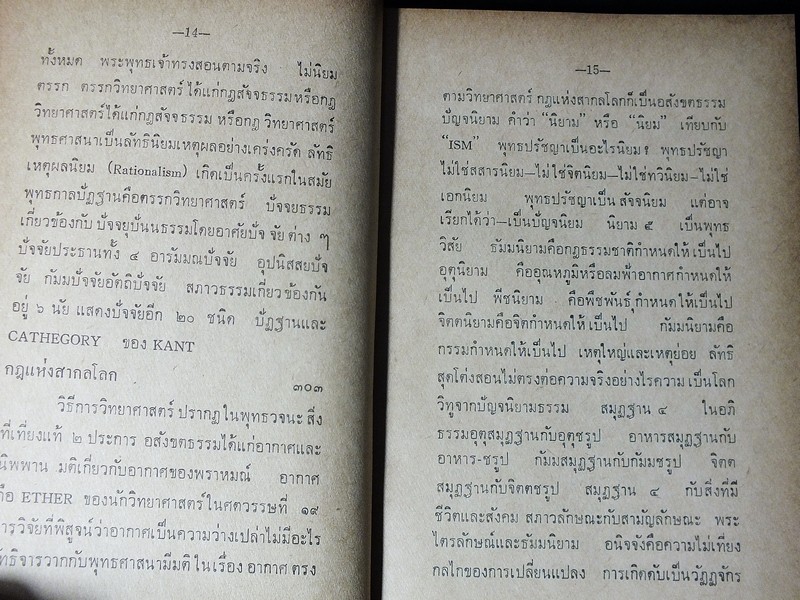 —14—
ทั้งหมด พระพุทธเจ้าทรงสอนตามจริง ไม่นิยม
ตรรก ตรรกวิทยาศาสตร์ ได้แก่กฎสัจจธรรมหรือกฎ
วิทยาศาสตร์ได้แก่กฎสัจจธรรม หรือกฎ วิทยาศาสตร์
พุทธศาสนาเป็นลัทธินิยมเหตุผลอย่างเคร่งครัด ลัทธิ
เหตุผลนิยม (Rationalism) เกิดเป็นครั้งแรกในสมัย
พุทธกาลปัฏฐานคือตรรกวิทยาศาสตร์ ปัจจยธรรม
เกี่ยวข้องกับ ปัจจยุบันนธรรมโดยอาศัยปัจ จัย ต่าง ๆ
ปัจจัยประธานทั้ง ๔ อารัมมณปัจจัย อุปนิสสยปัจ
จัย กัมมปัจจัยอัตถิปัจจัย สภาวธรรมเกี่ยวข้องกัน
อยู่ ๖ นัย แสดงปัจจัยอีก ๒๐ ชนิด ปัฏฐานและ
CATHEGORY ของ KANT
กฎแห่งสากลโลก ๓๐๓
วิธีการวิทยาศาสตร์ ปรากฏ ในพุทธวจนะ สิ่ง
ที่เที่ยงแท้ ๒ ประการ อสังขตธรรมได้แก่อากาศและ
นิพพาน มติเกี่ยวกับอากาศของพราหมณ์ อากาศ
คือ ETHER ของนักวิทยาศาสตร์ในศตวรรษที่ ๑๙
การวิจัยที่พิสูจน์ว่าอากาศเป็นความว่างเปล่าไม่มีอะไร
ลัทธิจารวากกับพุทธศาสนามีมติ ในเรื่อง อากาศ ตรง
—15—
ตามวิทยาศาสตร์ กฎแห่งสากลโลกก็เป็นอสังขตธรรม
ปัญจนิยาม คำว่า "นิยาม" หรือ "นิยม" เทียบกับ
"ISM" พุทธปรัชญาเป็นอะไรนิยม? พุทธปรัชญา
ไม่ใช่สสารนิยม—ไม่ใช่จิตนิยม—ไม่ใช่ทวินิยม—ไม่ใช่
เอกนิยม พุทธปรัชญาเป็น สัจจนิยม แต่อาจ
เรียกได้ว่า—เป็นปัญจนิยม นิยาม ๕ เป็นพุทธ
วิสัย ธัมมนิยามคือกฎธรรมชาติกำหนดให้ เป็นไป
อุตุนิยาม คืออุณหภูมิหรือลมฟ้าอากาศกำหนดให้
เป็นไป พีชนิยาม คือพืชพันธุ์กำหนดให้เป็นไป
จิตตนิยามคือจิตกำหนดให้ เป็นไป กัมมนิยามคือ
กรรมกำหนดให้เป็นไป เหตุใหญ่และเหตุย่อย ลัทธิ
สุดโต่งสอนไม่ตรงต่อความจริงอย่างไรความ เป็นโลก
วิทูจากปัญจนิยามธรรม สมุฏฐาน ๔ ในอภิ
ธรรมอุตุสมุฏฐานกับอุตุชรูป อาหารสมุฏฐานกับ
อาหาร-ชรูป กัมมสมุฏฐานกับกัมมชรูป จิตต
สมุฏฐานกับจิตตชรูป สมุฏฐาน ๔ กับสิ่งที่มี
ชีวิตและสังคม สภาวลักษณะกับสามัญลักษณะ พระ
ไตรลักษณ์และธัมมนิยาม อนิจจังคือความไม่เที่ยง
กลไกของการเปลี่ยนแปลง การเกิดดับเป็นวัฏฏจักร